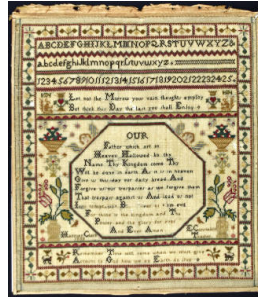 ABCDEFGHIJKLMNOPQRSTUVWXYZ&
abcdefghijklmnopqrstuvwxyz
1234567891011121314151617181920212223242 5
Let not the Morrow your vain thoughts employ
But think this Day the last you shall Enjoy
OUR
Father which art in
Heaven Hallowed be thy
Name Thy Kingdom come Thy
Will be done in earth As it is in heaven
Give us this day our daily bread And
Forgive us our trespasses as we forgive them
That trespass against us And lead us not
Into temptation But deliver us from evil
For thine is the kingdom and The
Power and the glory for ever
And Ever Amen
Remember Time will come when we must give
Account to God how we on Earth do live